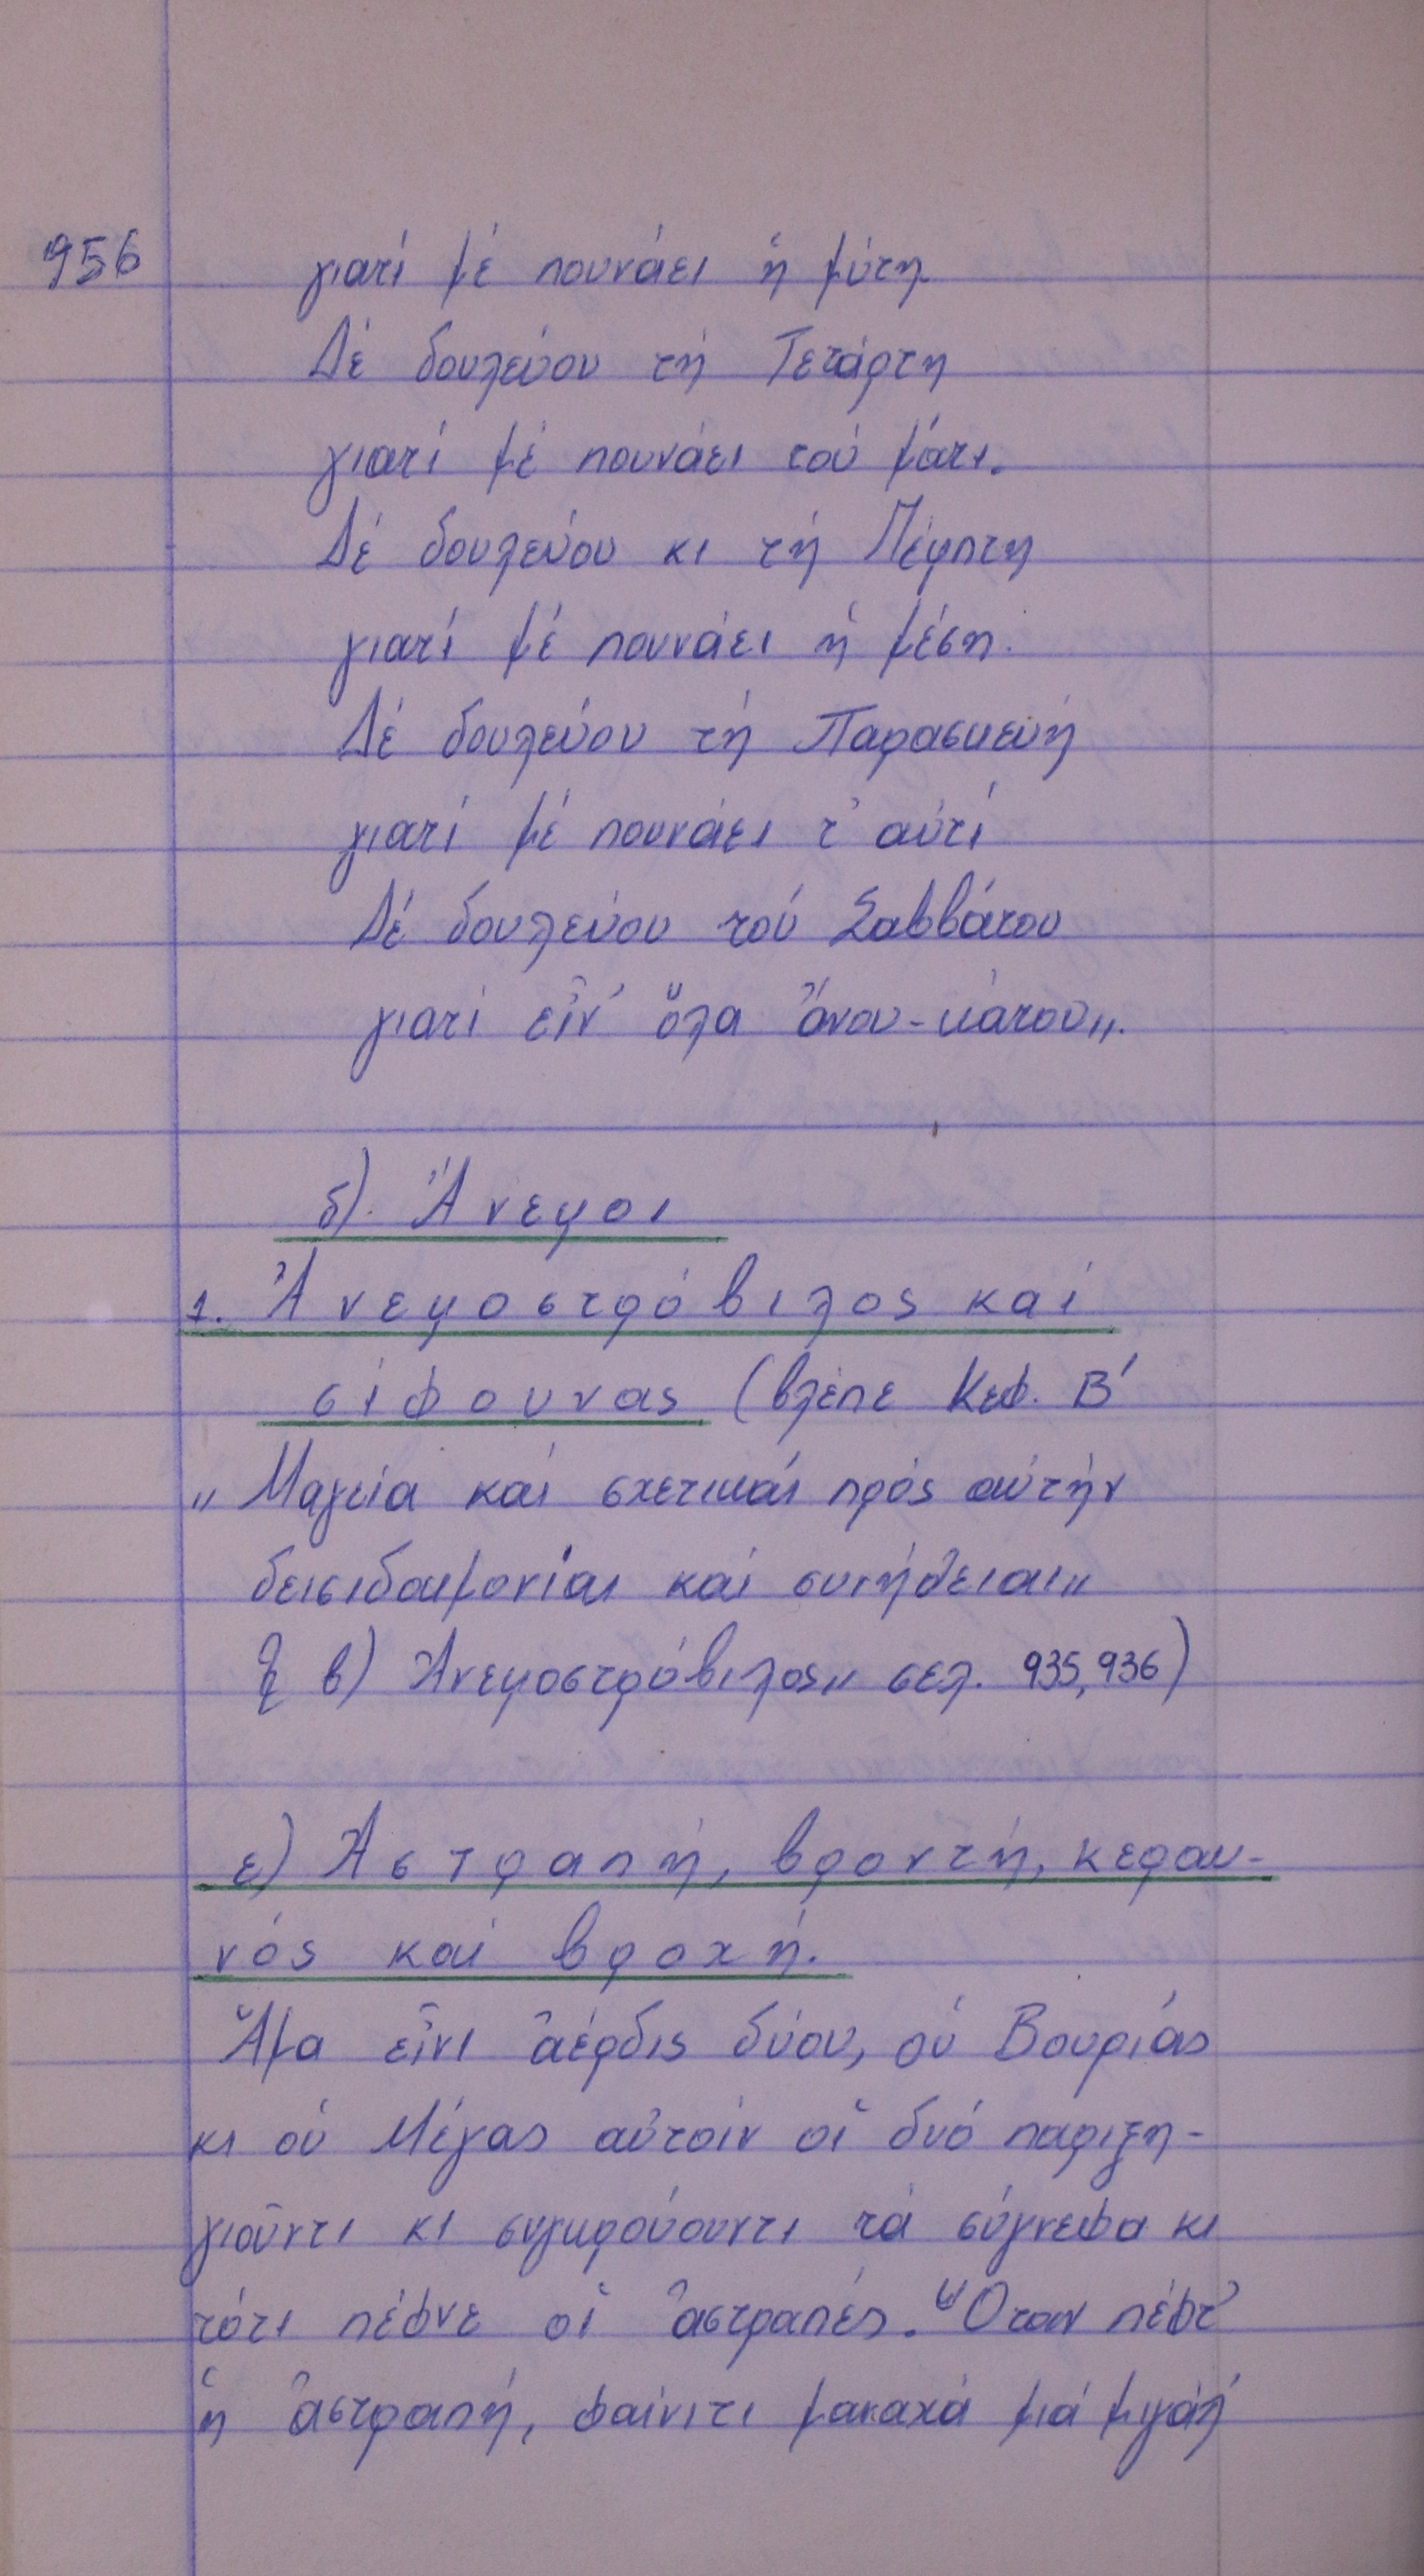 956
γιατί μέ πουνάει ἡ μύτη
Δέ δουλεύου τή Τετάρτη
γιατί μέ πουνάει τού μάτι.
Δέ δουλεύου κι τή Πέφπτη
γιατί μέ πουνάει ἡ μέση.
Δέ δουλεύου τή Παρασκευή
γιατί μέ πουνάει τ' αὐτί
Δέ δουλεύου τού Σαββάτου
γιατί εἶν' ὅλα ἄνου-κάτου„.
δ). Ἄνεμοι
1. Ἀνεμοστρόβιλος καί
σίφουνας (βλέπε Κεφ. Β'
„Μαγεία καί σχετικαί πρός αὐτήν
δεισιδαιμονίαι καί συνήθειαι„
β) Ἀνεμοστρόβιλος„ σελ. 935, 936)
ε) Ἀστραπή, βροντή, κεραυ-
νός καί βροχή.
Ἅμα εἶνι ἀέρδις δύου, οὐ Βουριάς
κι οὐ Μέγας αὐτοίν οἱ δυό παριξη-
γιοῦντι κι συγκρούουντι τά σύγνεφα κι
τότι πέφνε οἱ ἀστραπές. Ὅταν πέφτ'
ἡ ἀστραπή, φαίνιτι μακαχά μιά μιγάλ'